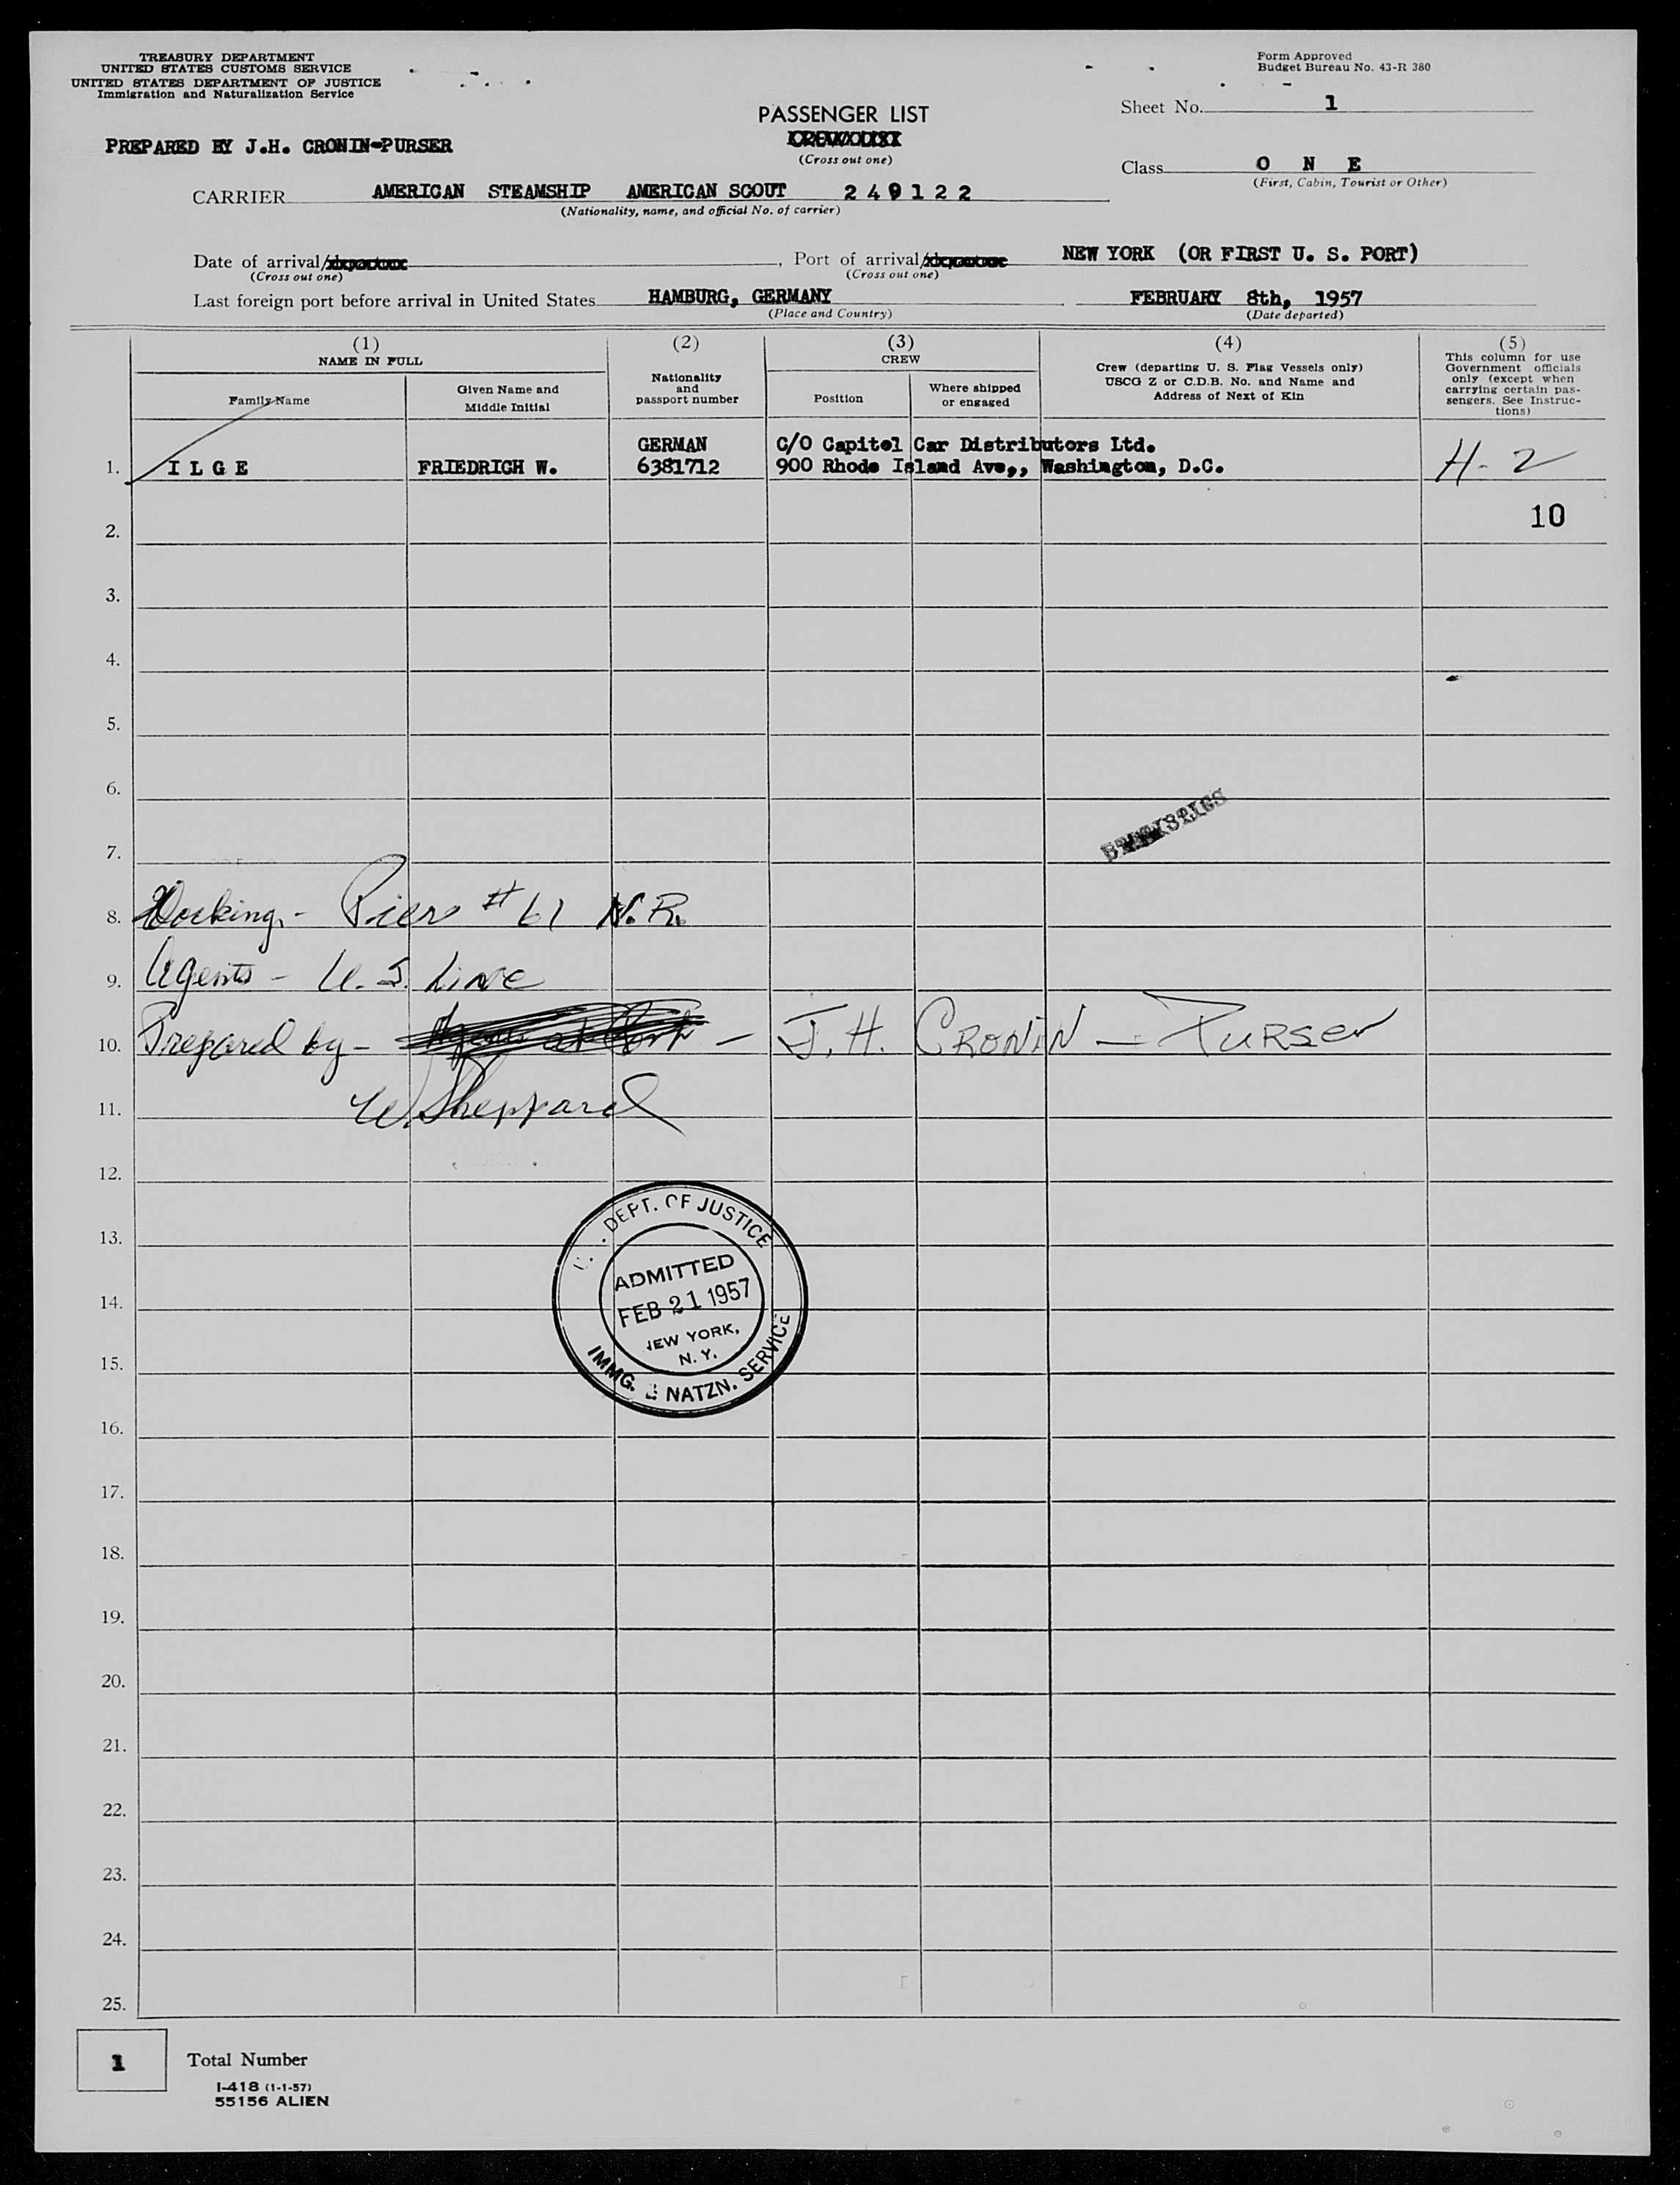 TREASURY DEPARTMENT
UNITED STATES CUSTOMS SERVICE
UNITED STATES DEPARTMENT OF JUSTICE
Immigration and Naturalization Service
Form Approved
Budget Bureau No. 43-R 380
PASSENGER LIST
Sheet No. 1
PREPARED BY J.H. CRONIN-PURSER
(Cross out one)
Class O N E
(First, Cabin, Tourist or Other)
CARRIER AMERICAN STEAMSHIP AMERICAN SCOUT 249122
(Nationality, name, and official No. of carrier)
Date of arrival/ , Port of arrival/ NEW YORK (OR FIRST U. S. PORT)
(Cross out one) (Cross out one)
Last foreign port before arrival in United States HAMBURG, GERMANY FEBRUARY 8th, 1957
(Place and Country) (Date departed)
(1) (2) (3) (4) (5)
NAME IN FULL
Family Name
Given Name and
Middle Initial
Nationality
and
passport number
CREW
Position
Where shipped
or engaged
Crew (departing U. S. Flag Vessels only)
USCG Z or C.D.B. No. and Name and
Address of Next of Kin
This column for use
Government officials
only (except when
carrying certain pas-
sengers. See Instruc-
tions)
GERMAN C/O Capitol Car Distributors Ltd.
1. I L G E FRIEDRICH W. 6381712 900 Rhode Island Ave,, Washington, D.C. H-2
2. 10
3.
4.
5.
6.
7.
8. Docking - Pier # 61 N.R.
9. Agents - U.S. Line
10. Prepared by - - J.H. CRONIN - PURSER
11. W. Sheppard
12.
13.
14.
15.
16.
17.
18.
19.
20.
21.
22.
23.
24.
25.
DEPT. OF JUSTICE
ADMITTED
FEB 21 1957
NEW YORK,
N. Y.
IMMG. & NATZN. SERVICE
1 Total Number
I-418 (1-1-57)
55156 ALIEN